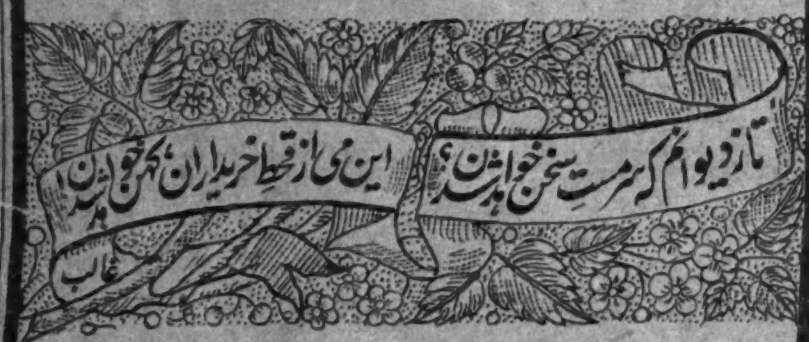 تا ز دیوانم کہ سرمستِ سخن خواہد شدن؟
این می از قحطِ خریداران، کہن خواہد شدن!
غالب